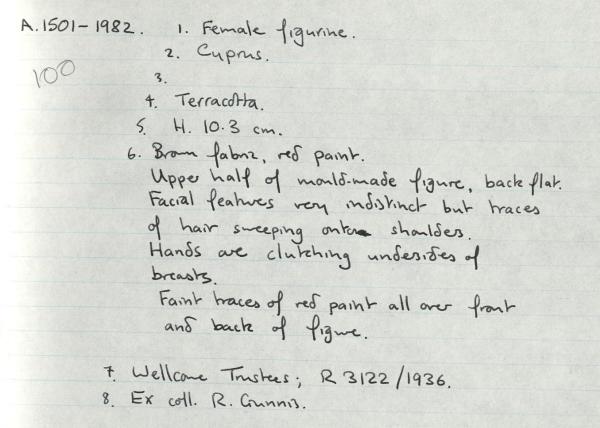 A.1501-1982. 1. Female figurine.
100
2. Cyprus.
3.
4. Terracotta.
5. H. 10.3 cm.
6. Brown fabric, red paint.
Upper half of mould-made figure, back flat.
Facial features very indistinct but traces
of hair sweeping onto shoulders.
Hands are clutching undersides of
breasts.
Faint traces of red paint all over front
and back of figure.
7. Wellcome Trustees; R 3122/1936.
8. Ex coll. R. Gunnis.